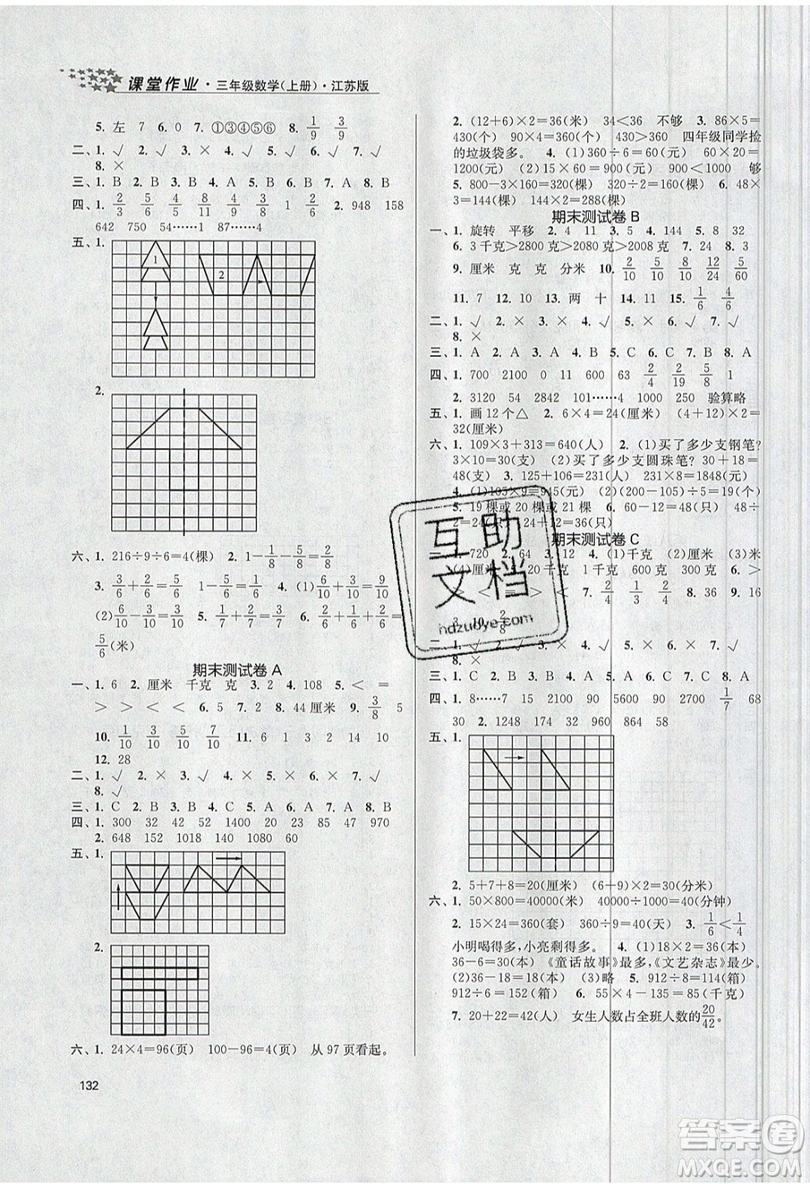 课堂作业·三年级数学(上册)·江苏版
5. 左 7 6. 0 7. ①③④⑤⑥ 8. 1/9 3/9
二、1. √ 2. × 3. √ 4. √ 5. √ 6. √ 7. √
8. ×
三、1. B 2. B 3. B 4. A 5. B 6. B 7. A 8. B
四、1. 2/3 5/6 4/5 8/11 6/8 1 2/6 2. 948 158
642 750 30……1 87……4
五、1.
1
2
2.
六、1. 216÷9÷6=4(棵) 2. 1-1/8-5/8=2/8
3. 3/6+2/6=5/6 1-5/6=1/6 4. (1)6/10+3/10=9/10
(2)6/10-3/10=3/10 5. 1/6+1/6=2/6 1-1/6=5/6
5/6(米)
期末测试卷 A
一、1. 6 2. 厘米 千克 克 3. 2 4. 108 5. < =
> > < < 6. 5 7. 2 8. 44 厘米 9. 3/8 5
10. 1/10 3/10 5/10 11. 6 1 2 13 14 16
12. 28
二、1. √ 2. × 3. × 4. √ 5. × 6. × 7. √
8. √
三、1. C 2. B 3. B 4. C 5. A 6. B 7. A 8. B
四、1. 300 32 42 1400 20 23 85 47 970
2. 648 152 1018 140 1080 60
五、1.
2.
六、1. 24×4=96(页) 100-96=4(页) 从 97 页看起。
132
2. (12+6)×2=36(米) 34<36 不够 3. 86×5=
430(个) 90×4=360(个) 430>360 四年级同学捡
的垃圾袋多。 4. (1)360÷6=60(元) 60×20=
1200(元) (2)60×15=900(元) 900<1000 够
5. 800-3×160=320(棵) 2×160=320(棵) 6. 48×
3=144(棵) 144×2=288(棵)
期末测试卷 B
一、1. 旋转 平移 2. 4 11 3. 5 4. 144 5. 8 32
6. 3 千克>2800 克>2080 克>2008 克 7. 24 8. 3
9. 厘米 克 克 分米 10. 2/10 5/10 2/8 5/8
11. 7 12. 10 13. 两 十 14. 11 15. 1/6 4/6
二、1. × 2. × 3. × 4. √ 5. × 6. √ 7. √
8. ×
三、1. C 2. A 3. C 4. B 5. C 6. B 7. A 8. B
四、1. 700 2100 0 11 600 63 2/4 2/19 1
2. 3120 54 2842 101……6 530 240 验算略
五、1. 画 12 个△ 2. 6×4=24(厘米) (4+12)×2=
32(厘米)
六、1. 109×3+313=640(人) 2. (1)买了多少支钢笔?
3×10=30(支) (2)买了多少支圆珠笔? 30+18=
48(支) 3. 125+106=231(只) 231×8=1848(只)
4. (1)105×9=945(元) (2)
5. 19 棵或 20 棵或 21 棵 6. 60-12=48(只) 48÷
2=24(只) 24+12=36(只)
期末测试卷 C
一、1. 720 2. 64 3. 12 4. (1)千克 (2)厘米 (3)克
(4)厘米 5. 200 克 1千克 600克 300 克 6. >
二、1. √ 2. √ 3. × 4. × 5. √ 6. × 7. √
8. √
三、1. C 2. A 3. C 4. C 5. B 6. B 7. A 8. B
四、1. 8……7 15 2100 90 5600 90 2700 1/7 68
30 2. 1248 174 32 960 864 58
五、1.
2. 5+7+8=20(厘米) (6+9)×2=30(厘米)
六、1. 50×800=40000(米) 40000÷1000=40(分钟)
2. 15×24=360(套) 360÷9=40(天) 3. 1/6<1/4
小明喝得多,小亮剩得多。 4. (1)18×2=36(本)
36-6=30(本) 《童话故事》最多,《文艺杂志》最少。
(2)36-18=18(本) (3)略 5. 912÷8=114(箱)
912÷6=152(箱) 6. 55×4-135=85(千克)
7. 20+22=42(人) 女生人数占全班人数的20/42。
互助文档
hdzuoye.com
答案圈
MXQE.COM